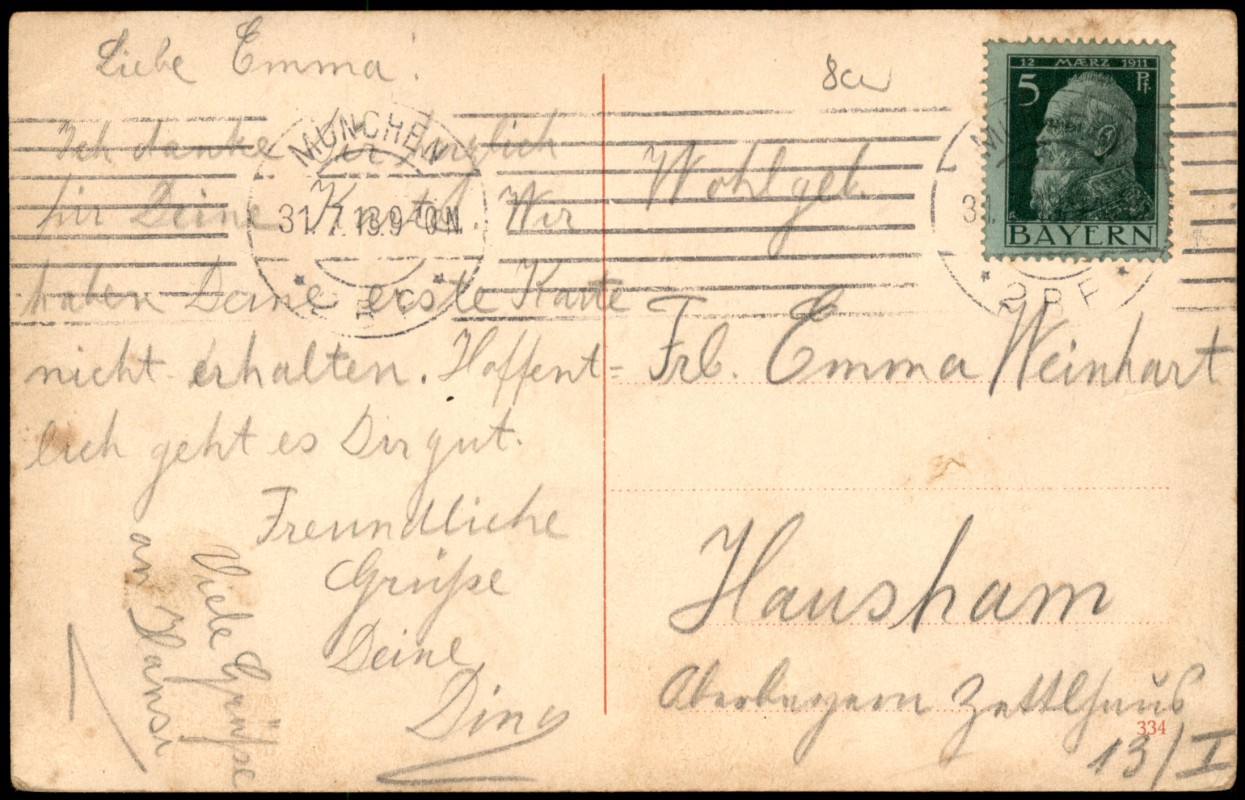 Liebe Emma!
Ich danke Dir herzlich
für Deine Karte. Wir
haben Deine erste Karte
nicht erhalten. Hoffent=
lich geht es Dir gut.
Freundliche
Grüße
Deine
Viele Grüße
an Hansi
MÜNCHEN
31.7.13.9-10N
2 B.P.
12 MÆRZ 1911
5 Pf.
BAYERN
Wohlgeb.
Frl. Emma Weinhart
Hausham
Oberbayern Zettlhaus
334
13/I